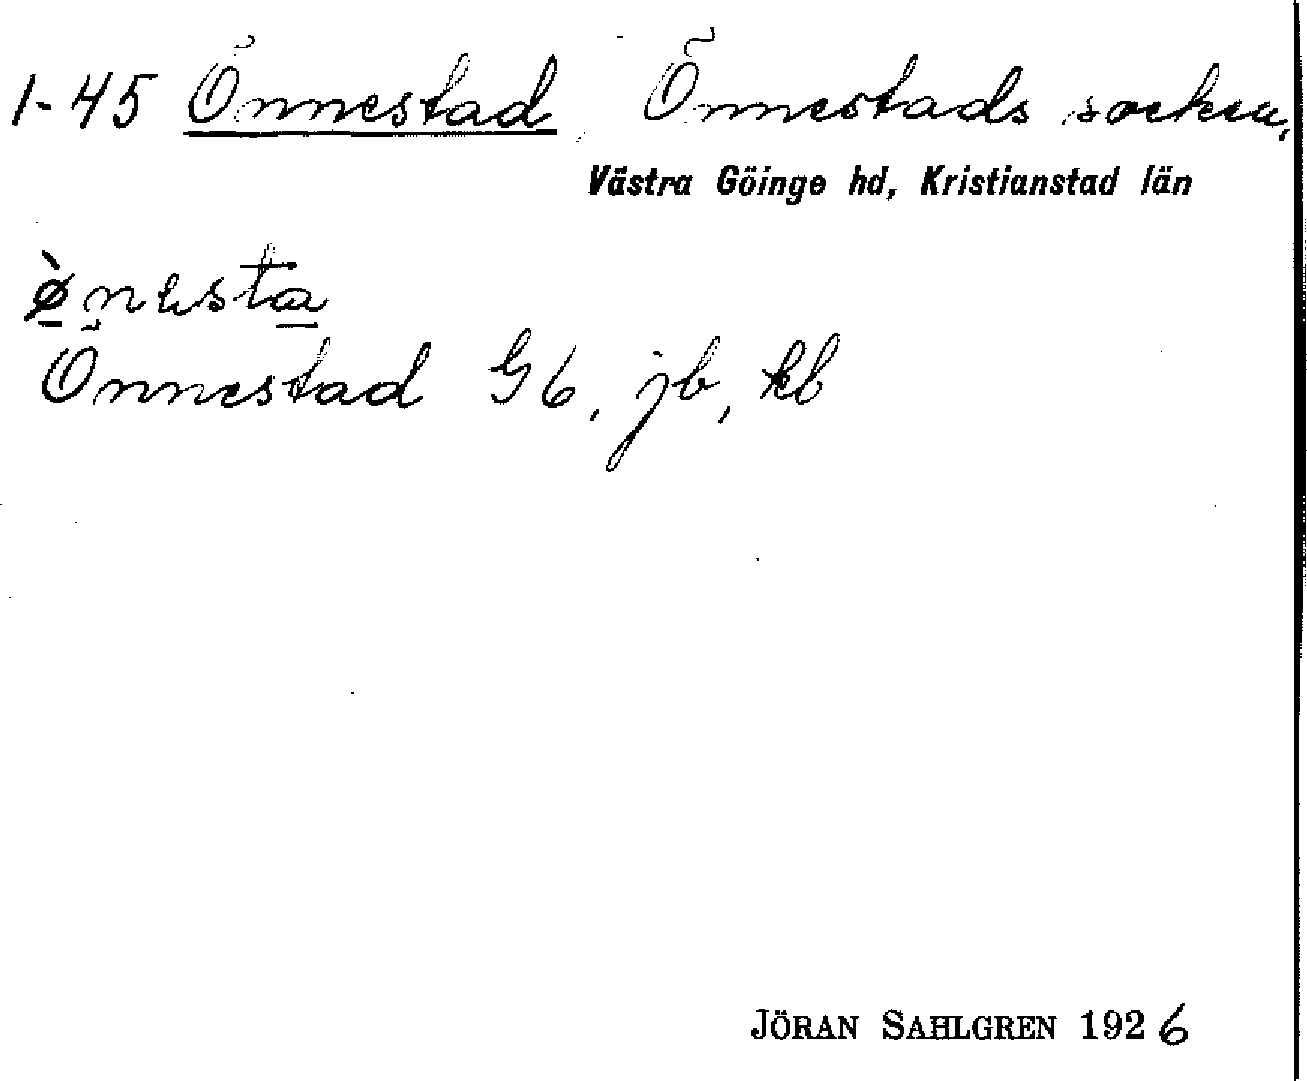 1-45 Önnestad Önnestads socken,
Västra Göinge hd, Kristianstad län
Önnestad G6, jb, kb
JÖRAN SAHLGREN 1926